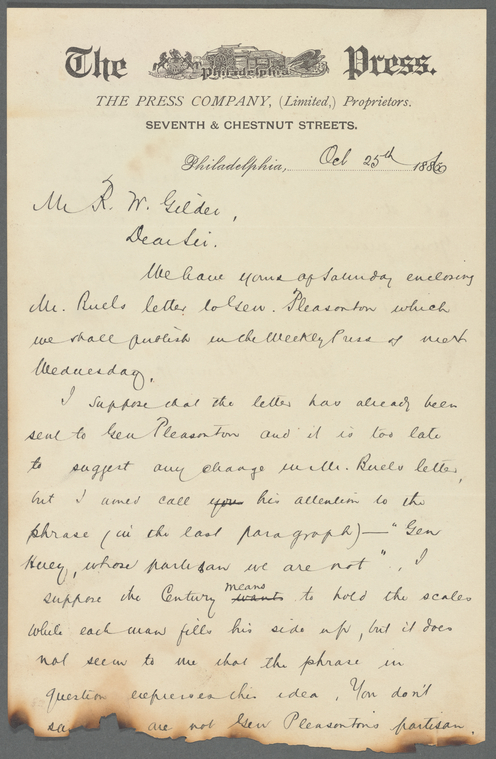 The Philadelphia Press.
THE PRESS COMPANY, (Limited,) Proprietors.
SEVENTH & CHESTNUT STREETS.
Philadelphia, Oct 25th 1886
Mr R. W. Gilder,
Dear Sir.
We have yours of Saturday enclosing
Mr. Buels letter to Gen. Pleasonton which
we shall publish in the Weekly Press of next
Wednesday.
I suppose that the letter has already been
sent to Gen Pleasonton and it is too late
to suggest any change in Mr. Buels letter,
but I would call you his attention to the
phrase (in the last paragraph)—"Gen
Huey, whose partisan we are not". I
suppose the Century means wants to hold the scales
while each man fills his side up, but it does
not seem to me that the phrase in
question expresses this idea. You don't
are not Gen Pleasonton's partisan.